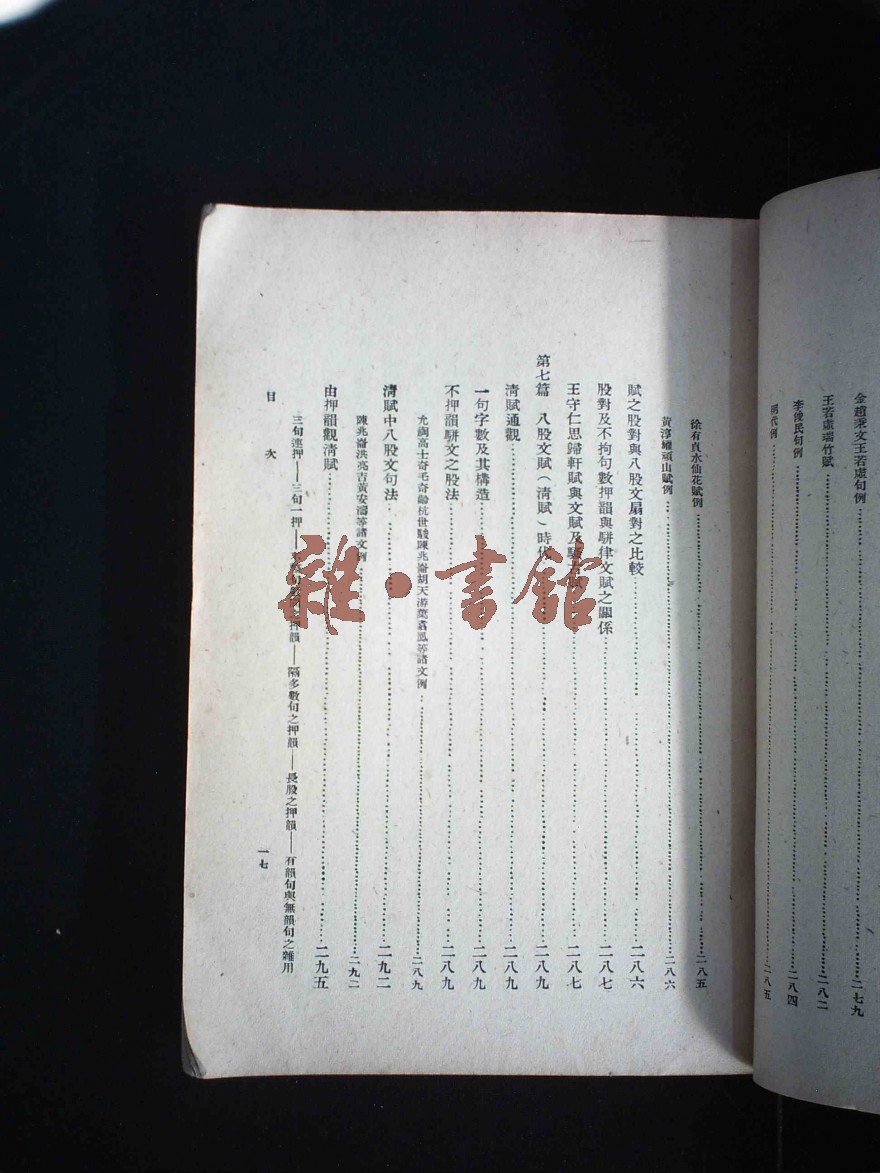 金趙秉文王若虛句例……二七九
王若虛瑞竹賦……二八二
李俊民句例……二八四
明代例……二八五
徐有貞水仙花賦例……二八五
黃淳耀頑山賦例……二八六
賦之股對與八股文扇對之比較……二八六
股對及不拘句數押韻與駢律文賦之關係……二八七
王守仁思歸軒賦與文賦及騷賦……二八七
第七篇 八股文賦(清賦)時代……二八九
清賦通觀……二八九
一句字數及其構造……二八九
不押韻駢文之股法……二八九
尤侗高士奇毛奇齡杭世駿陳兆崙胡天游等諸文例……二八九
清賦中八股文句法……二九二
陳兆崙洪亮吉黃安濤等諸文例……二九二
由押韻觀清賦……二九五
三句連押——三句一押——之押韻——隔多數句之押韻——長股之押韻——有韻句與無韻句之雜用
目次
一七
雜·書館